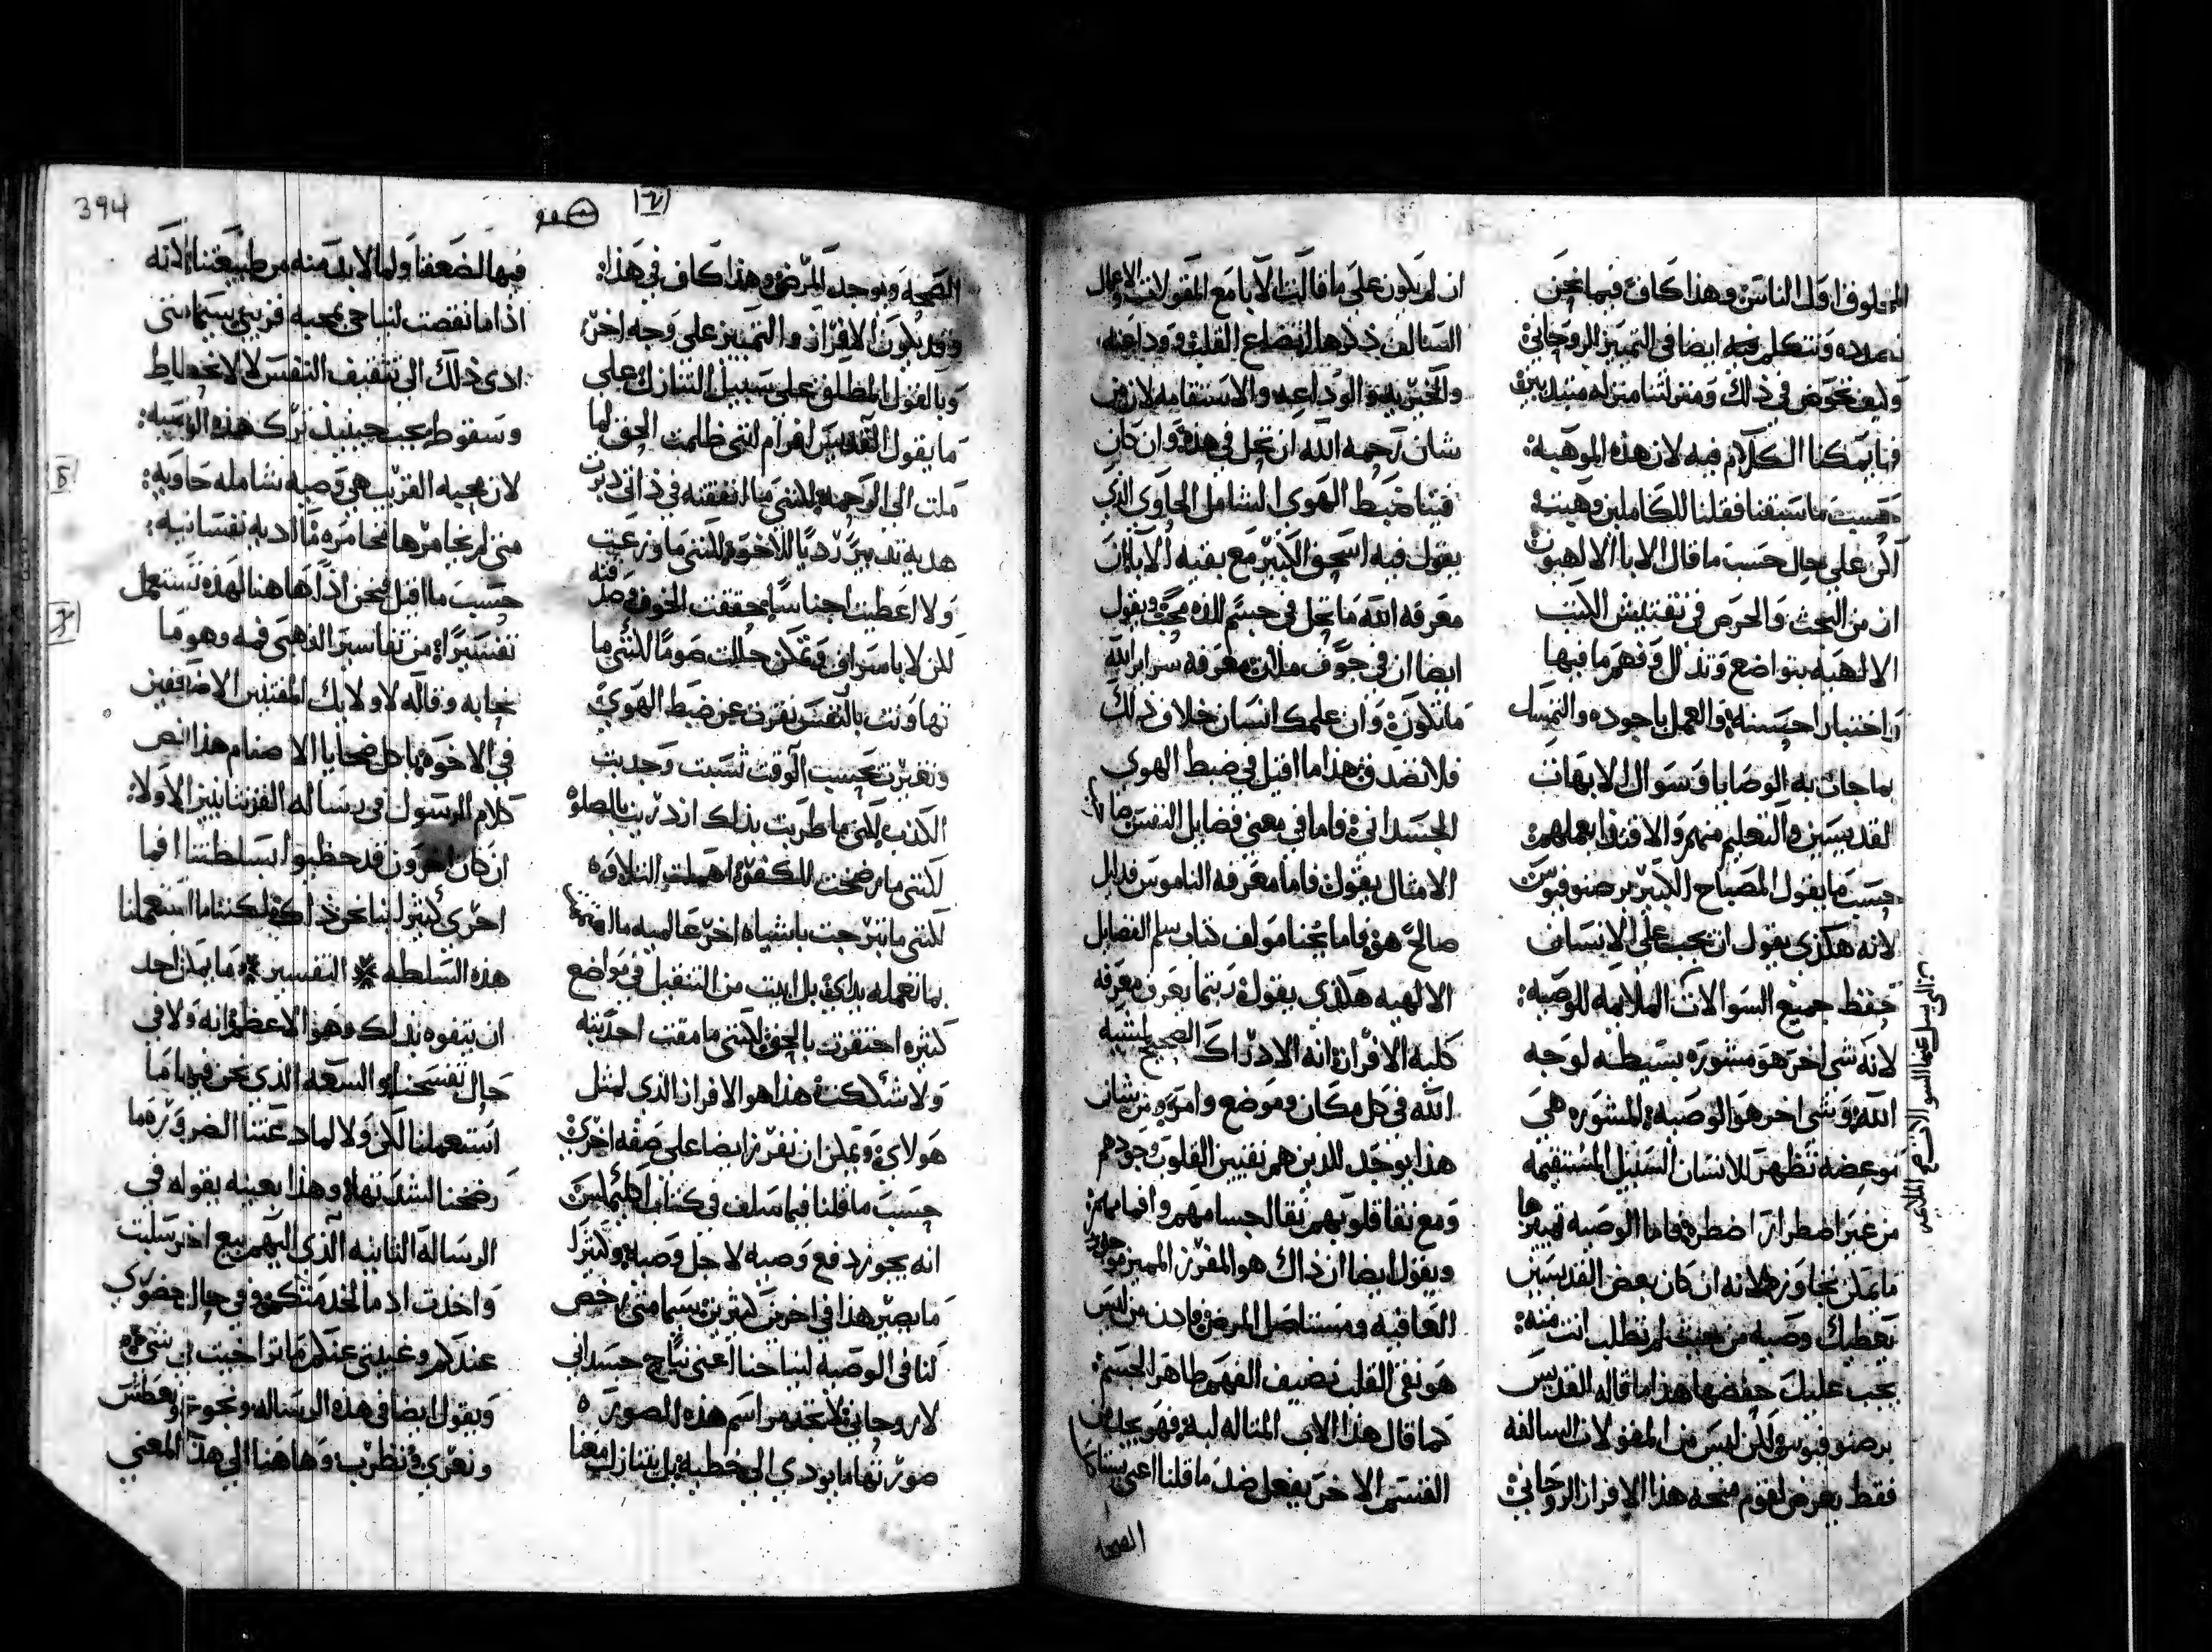 المخلوف اول الناس وهذا كاف فيما نحن
بصدده ونتكلم فيه ايضا في التمييز الروحاني
وكيف نخوض في ذلك ومنزلتنا منزله مبتديين
فما يمكنا الكلام فيه لان هذه الموهبه
حسبت ما سبقنا فقلنا للكاملين وهبت
لكن علي حال حسب ما قال الابا الالهيون
ان من البحث والحرص في تفتيش الكتب
الالهيه بتواضع وتذلل وفهم ما فيها
واختبار احسنه والعمل باجوده والتمسك
بما جات به الوصايا وسوال الابهات
القديسين والتعليم منهم والاقتدا بعملهم
حسب ما يقول المصباح الكبير برصنوفيوس
لانه هكذي يقول ان يجب علي الانسان
حفظ جميع السوالات الملايمه للوصيه
لانه شي اخر هو مشوره بسيطه لوجه
الله وشي اخر هو الوصيه المشوره هي
موعضه تظهر للانسان السبيل المستقيمه
من غير اضطرار اضطره فاما الوصيه تمييزها
ما يمكن تجاوزها لانه ان كان بعض القديسين
يعطيك وصيه من حيث لم تطلب انت منه
يجب عليك حفضها هذا ما قاله القديس
برصنوفيوس ولكن ليس من المقولات السالفه
فقط يعرض لقوم منحه هذا الافراز الروحاني
ان لم يكون علي ما قالت الابا مع المقولات والاعمال
السالف ذكرها اتضاع القلب ووداعته
والخيريه والوداعه والاستقامه لان من
شان رحمه الله ان تحل في هذه وان كان
فينا ضبط الهوي الشامل الحاوي الذي
يقول فيه اسحق الكبير مع بقيه الابا ان
معرفه الله ما تحل في جسم الذه محب ويقول
ايضا ان في جوف ملان معرفه سراير الله
ما تكون وان علمك انسان خلاف ذلك
فلا تصدق هذا ما اقيل في ضبط الهوي
الجسداني فاما في معني فضايل النفس صاحب
الامثال يقول فاما معرفه الناموس فدليل
صالح هو فاما نحنا مولف كتاب سلم الفضايل
الالهيه هكذي يقول ربتما يعرف معرفه
كليه الافراز انه الادراك الصحيح لمشيه
الله في كل مكان وموضع وامر من شان
هذا يوجد للذين هم نقيين القلوب وجودهم
ومع نقا قلوبهم نقا اجسامهم وافمامهم
ويقول ايضا ان ذاك هو المفرز المميز موجود
العافيه ومستاصل المرض فاذن من ليس
هو نقي القلب نضيف الفهم طاهر الجسم
كما قال هذا الاب المتاله لبه فهو علي
القسم الاخر يفعل ضد ما قلنا اعني
الصحه
الصحه ويوجد المرض وهذا كاف في هذا
وقد يكون الافراز والتمييز علي وجه اخر
وبالقول المطلق علي سبيل التنازل علي
ما يقول القديس افرام انني ظلمت الحق لما
ملت الي الرحمه لكنني ما اتفقته في ذاتي دبرت
هديه تدبير رديا للاخوه لكنني ما وزعت
ولا اعطيت اجناسا حققت الخوف وصدقته
لكن لا باسراف وتمكن حللت صوما لكنني ما
تهاونت بالنفس نفرت عن ضبط الهوي
وتغيرت بحسب الوقت نسبت وجدبت
الكذب لكني ما طربت بذلك ازدريت بالصلوه
لكنني ما رضخت للكفر اهملت التلاوه
لكنني ما تنزجت باشياه اخر عالميه
بما نعمله بداي بل ابيت من التنقيل في مواضع
كثيره احتقرت بالحق لكنني ما مقت احد بته
ولا شككت هذا هو الافراز الذي لمثل
هولاي ويمكن ان نفرز ايضا علي صفه اخري
حسب ما قلنا فيما سلف في كتاب
انه يجوز دفع وصيه لاجل وصيه وكيف
ما يصير هذا في اخرين كثيرين سيما متي رخص
لنا في الوصيه لنياحنا اعني نياح جسداني
لا روحاني لا تجد مراسم هذه الصوره
صورتها ما يودي الي خطيه بل يتنازل معنا
فيها لضعفنا ولما لا بد منه من طبيعتنا لانه
اذا ما نقصت لنياحي محبه قريبي سيما متي
ادي ذلك الي تثقيف النفس لا لانحطاط
وسقوط يجب حينيذ ترك هذه الوصيه
لان محبه القريب هي وصيه شامله حاويه
متي لم يخامرها مخامره ما اديه نفسانيه
حسب ما اقيل فنحن اذا هاهنا لهذه نستعمل
تفسيرا من تفاسير الذهبي فمه وهو ما
نحا به وقاله لاولايك المغتنين الاضافيين
في الاخوه باكل ضحايا الاصنام هذا نص
كلام الرسول في رساله القرنتانيين الاولا
ان كان اخرون قد حظيوا بسلطتنا افما
احري كثير لنا نحن ذاك لكننا ما استعملنا
هذه السلطه ※ التفسير ※ ما يمكن احد
ان يتفوه بذلك وهو الاعظم انه ولا في
حال تفسحنا والسعه الذي نحن فيها ما
استعملنا لكن ولا لما دعتنا الضروره ما
رضخنا لشدتها وهذا بعينه يقوله في
الرساله الثانيه الذي اليهم بيع اخر سلبت
واخذت اد ما لخدمتكم وفي حال حضوري
عندكم وغيبتي عنكم ما تراخيت في شي
ويقول ايضا في هذه الرساله ونجوع ونعطش
ونعري ونظرب وهاهنا الي هذا المعني
394